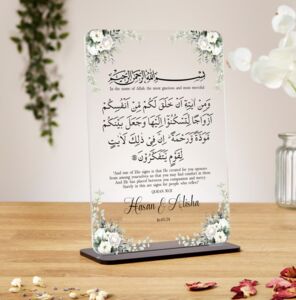 بسم الله الرحمن الرحيم
In the name of Allah the most glorious and most merciful
وَمِنْ آيَتِهِ أَنْ خَلَقَ لَكُمْ مِنْ أَنْفُسِكُمْ
أَزْوَاجًا لِتَسْكُنُوا إِلَيْهَا وَجَعَلَ بَيْنَكُمْ
مَوَدَّةً وَرَحْمَةً إِنَّ فِي ذَلِكَ لَآيَتٍ
لِقَوْمٍ يَتَفَكَّرُونَ
"And one of His signs is that He created for you spouses
from among yourselves so that you may find comfort in them.
And He has placed between you compassion and mercy.
Surely in this are signs for people who reflect"
QURAN 30:21
Hasan & Alisha